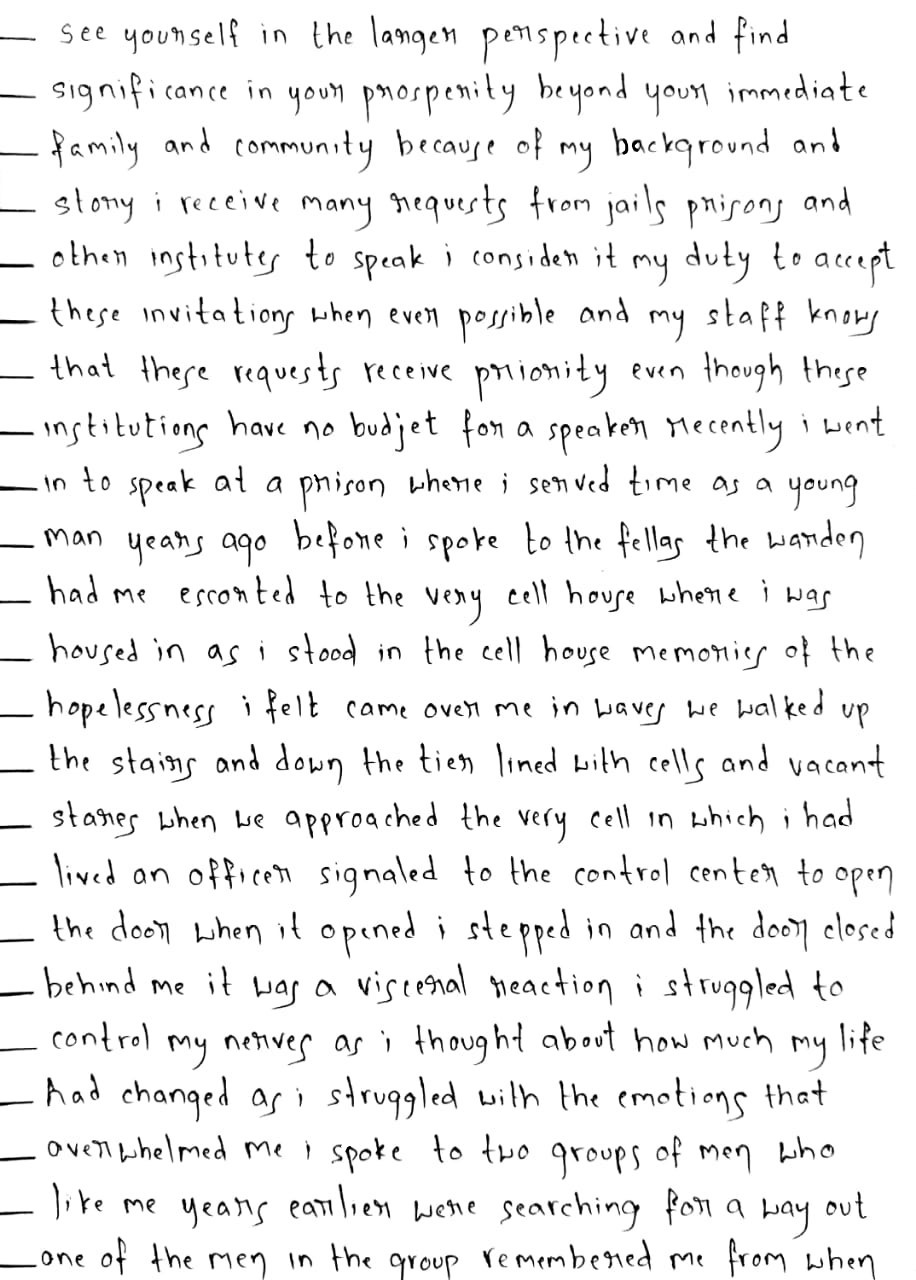 see yourself in the larger perspective and find
significance in your prosperity beyond your immediate
family and community because of my background and
story i receive many requests from jails prisons and
other institutes to speak i consider it my duty to accept
these invitations when ever possible and my staff knows
that these requests receive priority even though these
institutions have no budjet for a speaker recently i went
in to speak at a prison where i served time as a young
man years ago before i spoke to the fellas the warden
had me escorted to the very cell house where i was
housed in as i stood in the cell house memories of the
hopelessness i felt came over me in waves we walked up
the stairs and down the tier lined with cells and vacant
stares when we approached the very cell in which i had
lived an officer signaled to the control center to open
the door when it opened i stepped in and the door closed
behind me it was a visceral reaction i struggled to
control my nerves as i thought about how much my life
had changed as i struggled with the emotions that
overwhelmed me i spoke to two groups of men who
like me years earlier were searching for a way out
one of the men in the group remembered me from when